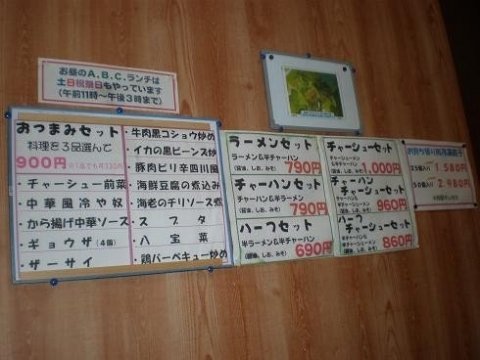 お昼のA.B.C.ランチは
土日祝祭日もやっています
(午前11時〜午後3時まで)
おつまみセット
料理を3品選んで
900円
・チャーシュー前菜
・中華風冷や奴
・から揚げ中華ソース
・ギョウザ(4個)
・ザーサイ
・牛肉黒コショウ炒め
・イカの黒ビーンズ炒め
・豚肉ピリ辛四川風
・海鮮豆腐の煮込み
・海老のチリソース煮
・スブタ
・八宝菜
・鶏バーベキュー炒め
ラーメンセット
ラーメン&半チャーハン
(醤油、しお、みそ) 790円
チャーハンセット
チャーハン&半ラーメン
(醤油、しお、みそ) 790円
ハーフセット
半ラーメン&半チャーハン
(醤油、しお、みそ) 690円
チャーシューメンセット
1,000円
チャーハン
チャーシューセット
960円
ハーフ
チャーシューセット
860円
1,580円
50個入り 2,980円